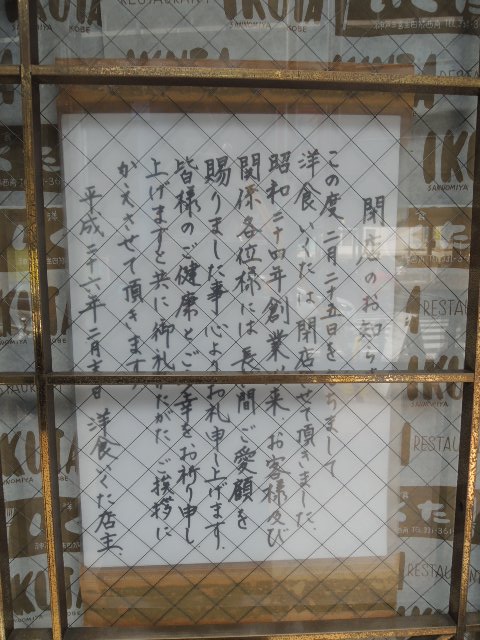 閉店のお知らせ
この度 二月二十五日をもちまして
洋食いくたは 閉店させて頂きました、
昭和二十四年創業以来 お客様及び
関係各位様には 長い間 ご愛顧を
賜りました事 心よりお礼申し上げます.
皆様のご健勝とご多幸をお祈り申し
上げますと共に 御礼かたがた ご挨拶に
かえさせて頂きます
平成二十六年 二月吉日 洋食いくた店主.
RESTAURANT
IKUTA
SANNOMIYA
KOBE